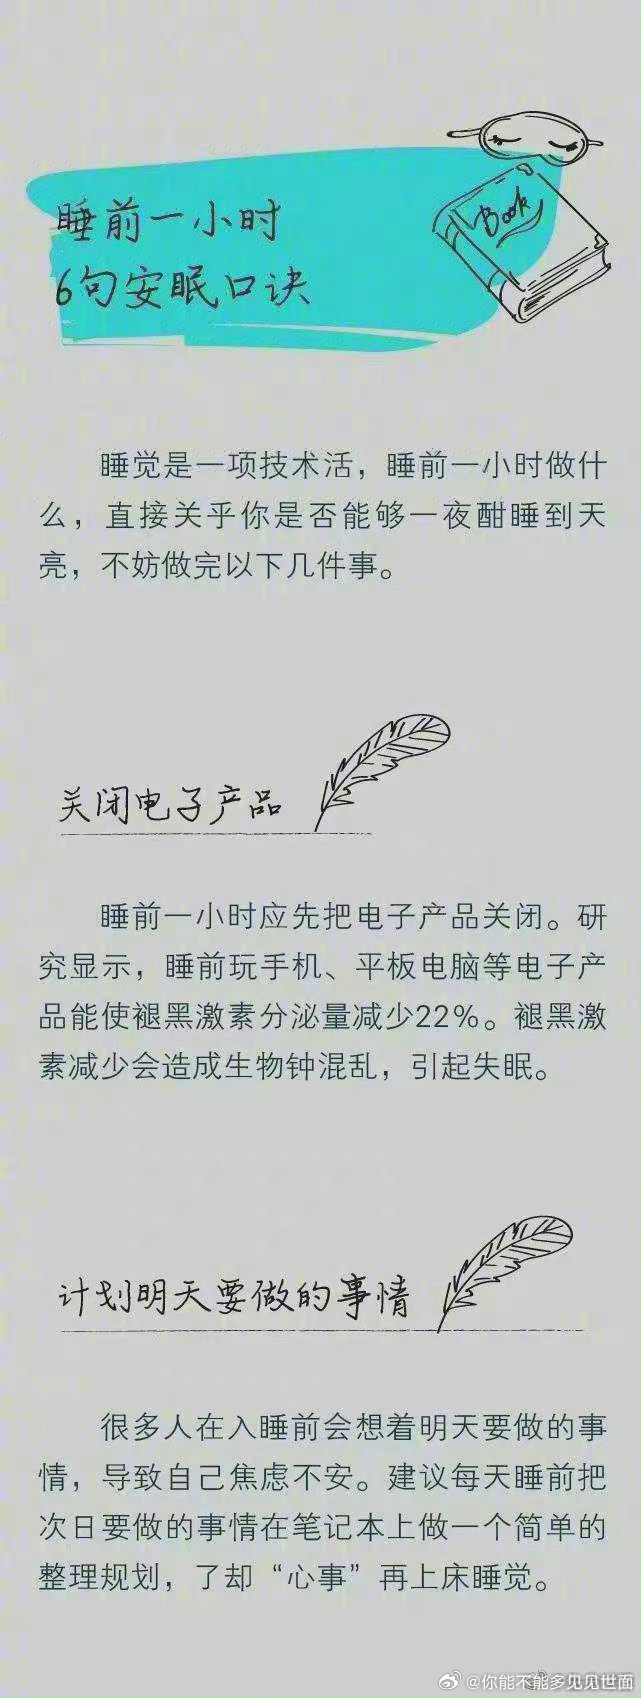 睡前一小时
6句安眠口诀
Book
睡觉是一项技术活，睡前一小时做什
么，直接关乎你是否能够一夜酣睡到天
亮，不妨做完以下几件事。
关闭电子产品
睡前一小时应先把电子产品关闭。研
究显示，睡前玩手机、平板电脑等电子产
品能使褪黑激素分泌量减少22%。褪黑激
素减少会造成生物钟混乱，引起失眠。
计划明天要做的事情
很多人在入睡前会想着明天要做的事
情，导致自己焦虑不安。建议每天睡前把
次日要做的事情在笔记本上做一个简单的
整理规划，了却“心事”再上床睡觉。
@你能不能多见见世面